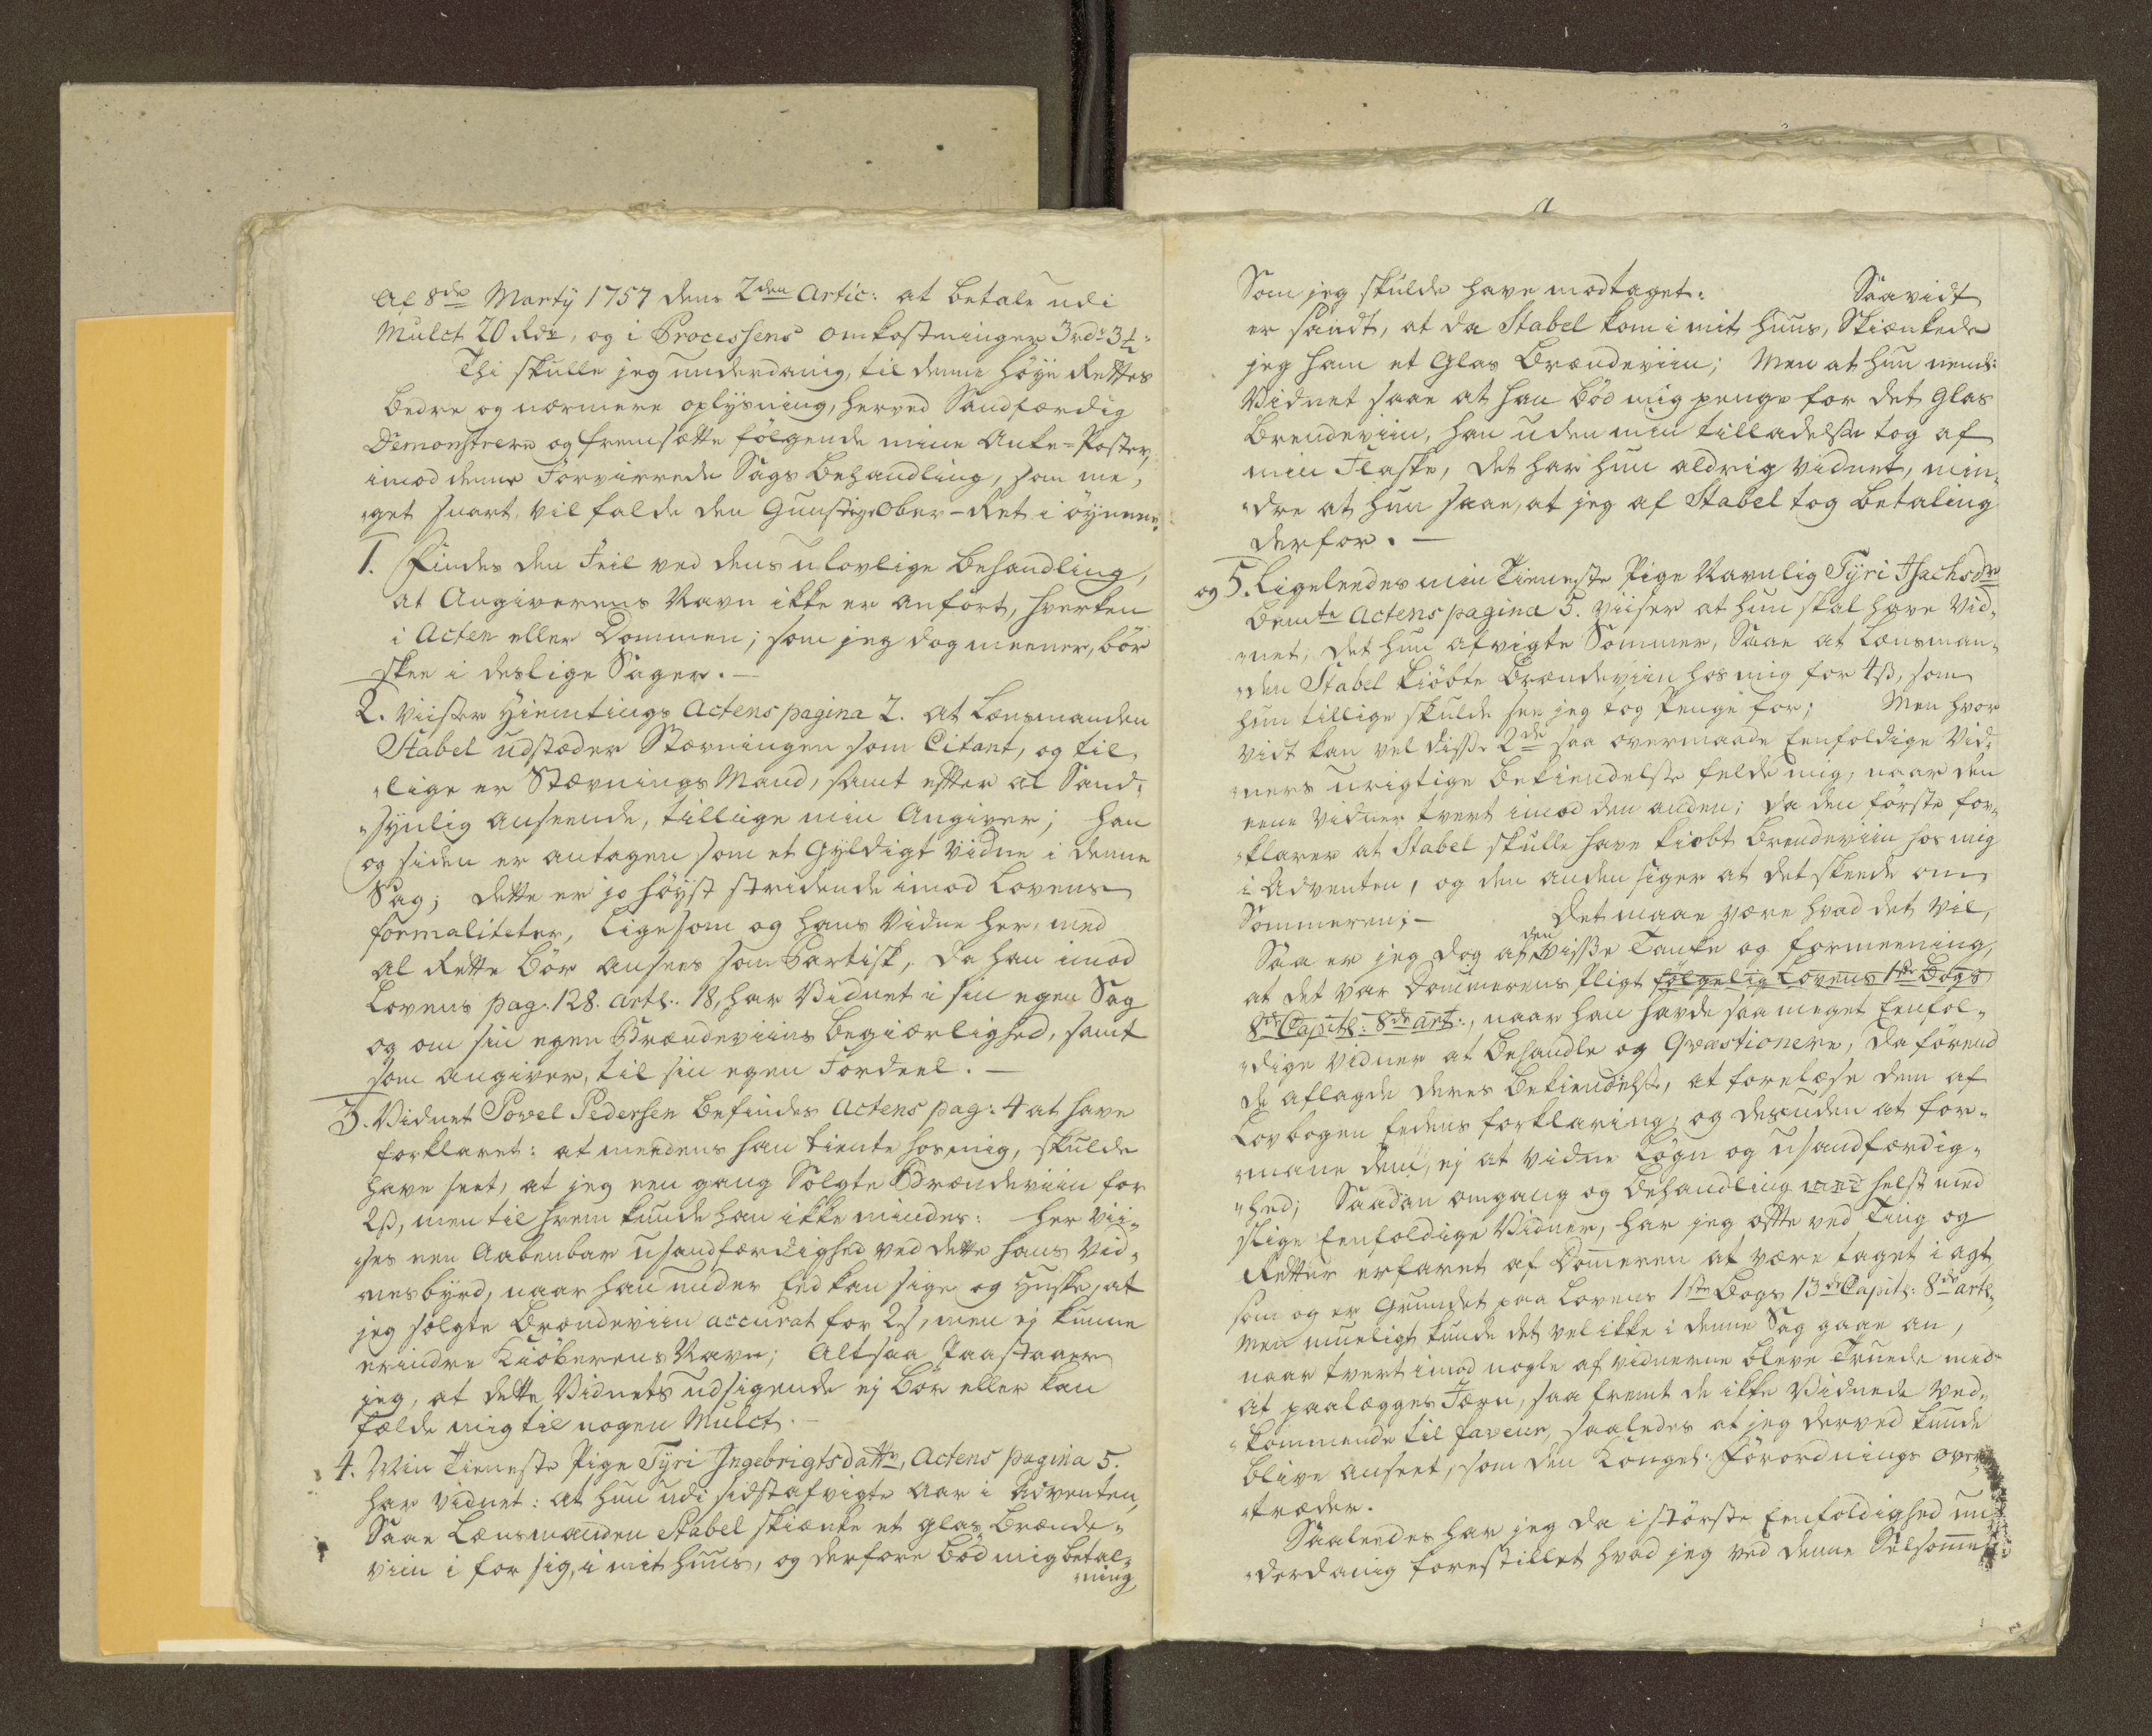 Af 8de Martÿ 1757 dens 2den Artic: at betale udi
Mulct 20 Rdr, og i Processens omkostninger 3 rdr 3
Thi skulle jeg underdanig, til denne höye Rettes
bedre og nærmere oplysning, herved Sandfærdig
Demonstrere og fremsætte fölgende mine Anke-Poster,
imod denne Forvirrede Sags behandling, som me,
"get snart vil falde den Gunstige Ober-Ret i öynene
1. Findes den Feil ved dens ulovlige behandling,
at Angiverens Navn ikke er anfört, hverken
i Acten eller Dommen; som jeg dog meener, bör
skee i deslige Sager. —
2. Viiser Hiemtings Actens pagina 2. at Lensmanden
Stabel udstæder Stævningen som Citant, og til,
"lige er Stævnings Mand, samt efter al Sand,
"synlig anseende, tillige min Angiver; han
og siden er antagen som et Gyldigt Vidne i denne
Sag; dette er jo höyst stridende imod Lovens
formaliteter, ligesom og hans Vidne her, med
al Rette bör ansees som Partisk, da han imod
Lovens pag. 128. artl. 18, har Vidnet i sin egen Sag
og om sin egen Brændeviins begiærlighed, samt
som angiver, til sin egen Fordeel. —
3. Vidnet Povel Pedersen befindes Actens pag: 4 at have
forklaret: at meedens han tiente hos mig, skulde
have seet, at jeg een gang Solgte Brændeviin for
2 s, men til hvem kunde han ikke mindes: her vii,
"ses een Aabenbar usandfærdighed ved dette hans Vid,
nesbyrd, naar han under Eed kan sige og Huske, at
jeg solgte Brændeviin accurat for 2 s, men ej kunne
erindre Kiöberens Navn; Altsaa Paastaaer
jeg, at dette Vidnets udsigende ej bör eller kan
fælde mig til nogen Mulct. —
4. Min Tieneste Pige Tyri Ingebrigtsdattr, Actens pagina 5.
har vidnet: at hun udi sidstafvigte Aar i Adventen,
Saae Lænsmanden Stabel skiænke et glas Brænde,
viin i for sig, i mit huus, og derfore böd mig betal,
"ning
Som jeg skulde have modtaget: Saavidt
er sandt, at da Stabel kom i mit huus, Skiænkede
jeg ham et Glas Brændeviin; Men at hun nemlig:
Vidnet saae at han böd mig penge for det Glas
Brendeviin, han uden min tilladelse tog af
min Flaske, det har hun aldrig vidnet, min,
"dre at hun saae, at jeg af Stabel tog betaling
derfor. —
og 5. Ligeleedes min Tieneste Pige Navnlig Tyri Isachsdr
bemte Actens pagina 5. viiser at hun skal have Vid,
"net, det hun afvigte Sommer, Saae at Lænsman,
"den Stabel kiöbte Brændeviin hos mig for 4 s, som
hun tillige skulde see jeg tog Penge for; Men hvor
vidt kan vel disse 2de saa overmaade Eenfoldige Vid,
"ners urigtige bekiendelse felde mig, naar den
eene vidner tvert imod den anden; da den förste for,
"klarer at Stabel skulle have kiöbt Brendeviin hos mig
i Adventen, og den anden siger at det skeede om
Sommeren; — Det maae være hvad det vil,
Saa er jeg dog af den visse Tanke og formeening,
at det var Dommerens Pligt fölgelig Lovens 1ste Bogs
8de Capitl: 8de art:, naar han havde saa meget Eenfol,
"dige vidner at behandle og Qvæstionere, da förend
de aflagde deres bekiendelse, at forelæse dem af
Lovbogen Eedens forklaring, og desuden at for,
"mane dem, ej at vidne Lögn og usandfærdig,
"hed; Saadan omgang og behandling med helst med
slige Eenfoldige Vidner, har jeg ofte ved Ting og
Retter erfaret af Domeren at være taget i agt,
som og er Grundet paa Lovens 1ste Bogs 13de Capitl: 8de artl,
men mueligt kunde det vel ikke i denne Sag gaae an,
naar tvert imod nogle af vidnerne bleve Truede med
at paalægges Jern, saa fremt de ikke Vidnede Ved,
"kommende til faveur, saaledes at jeg derved kunde
blive anseet, som den Kongel: Forordnings over
"træder.
Saaleedes har jeg da i störste Eenfoldighed un
"derdanig forestillet hvad jeg ved denne Selsomme